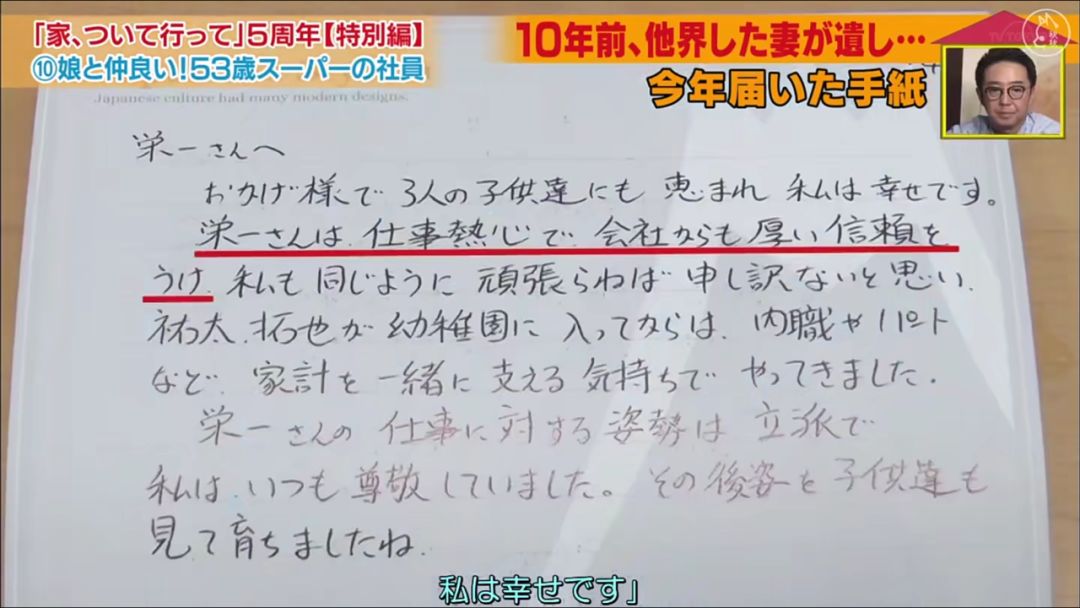 「家、ついて行って」5周年【特別編】
⑩娘と仲良い!53歳スーパーの社員
10年前、他界した妻が遺し…
今年届いた手紙
Japanese culture had many modern designs.
栄一さんへ
おかげ様で 3人の子供達にも 恵まれ 私は 幸せです。
栄一さんは、仕事熱心で、会社からも 厚い 信頼を
うけ、私も 同じように 頑張らねば 申し訳ないと思い、
祐太、拓也が 幼稚園に 入ってからは、内職や パート
など、家計を 一緒に 支える 気持ちで やってきました。
栄一さんの 仕事に対する 姿勢は 立派で
私は いつも 尊敬していました。その後姿を 子供達も
見て育ちましたね。
私は幸せです」